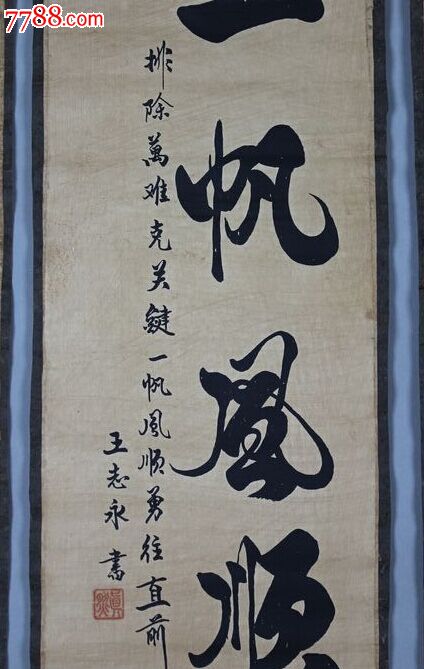 7788.com
一帆風顺
排除萬难克关鍵一帆風顺勇往直前
王志永書